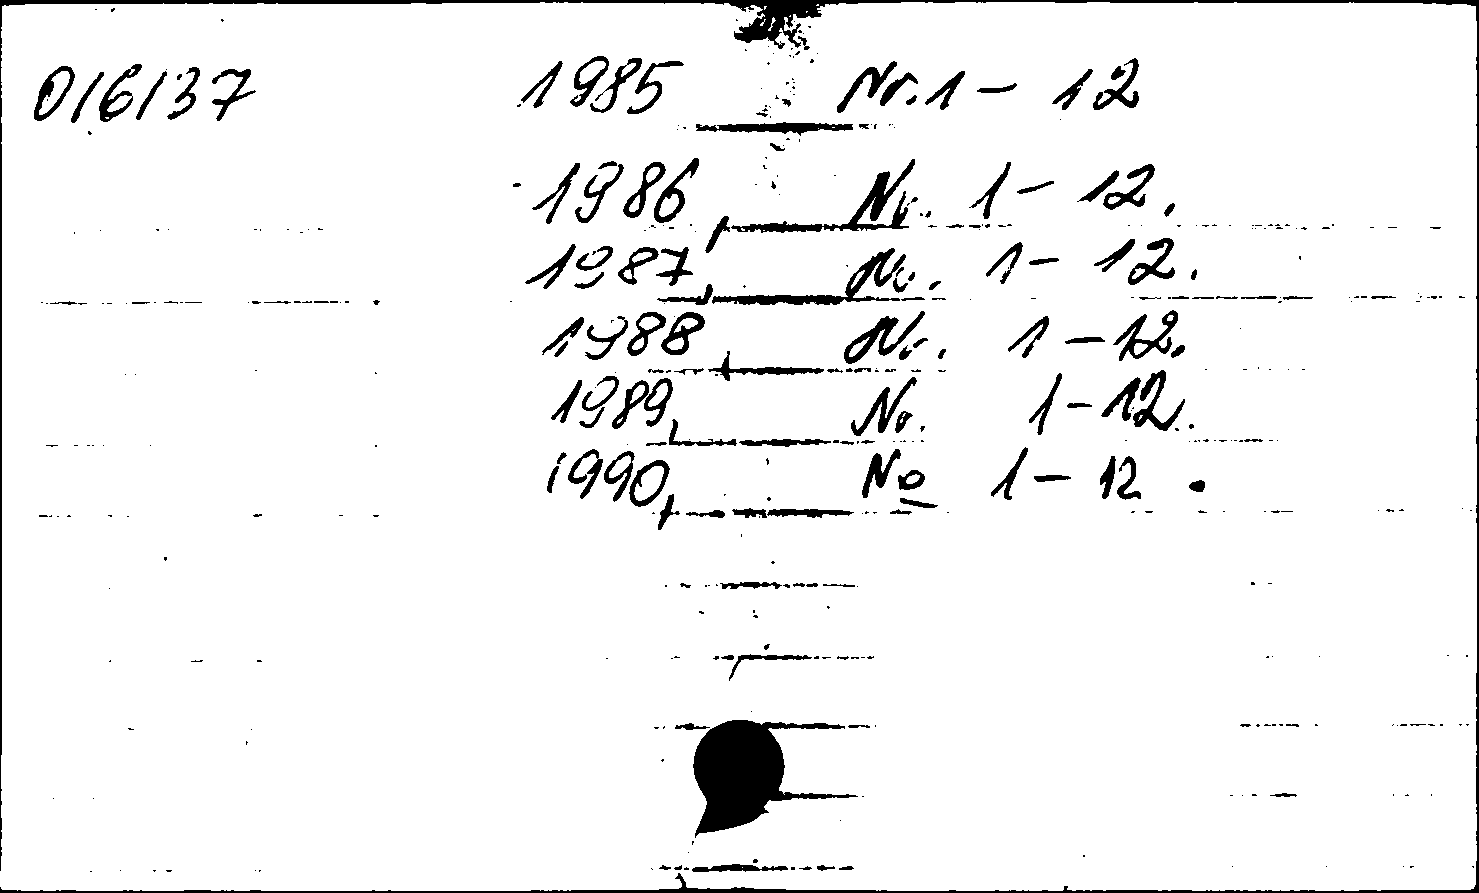 016137 1985 Nr. 1 - 12
1986, Nr. 1 - 12.
1987, Nr. 1 - 12.
1988, Nr. 1 - 12.
1989, Nr. 1 - 12.
1990, No 1 - 12.